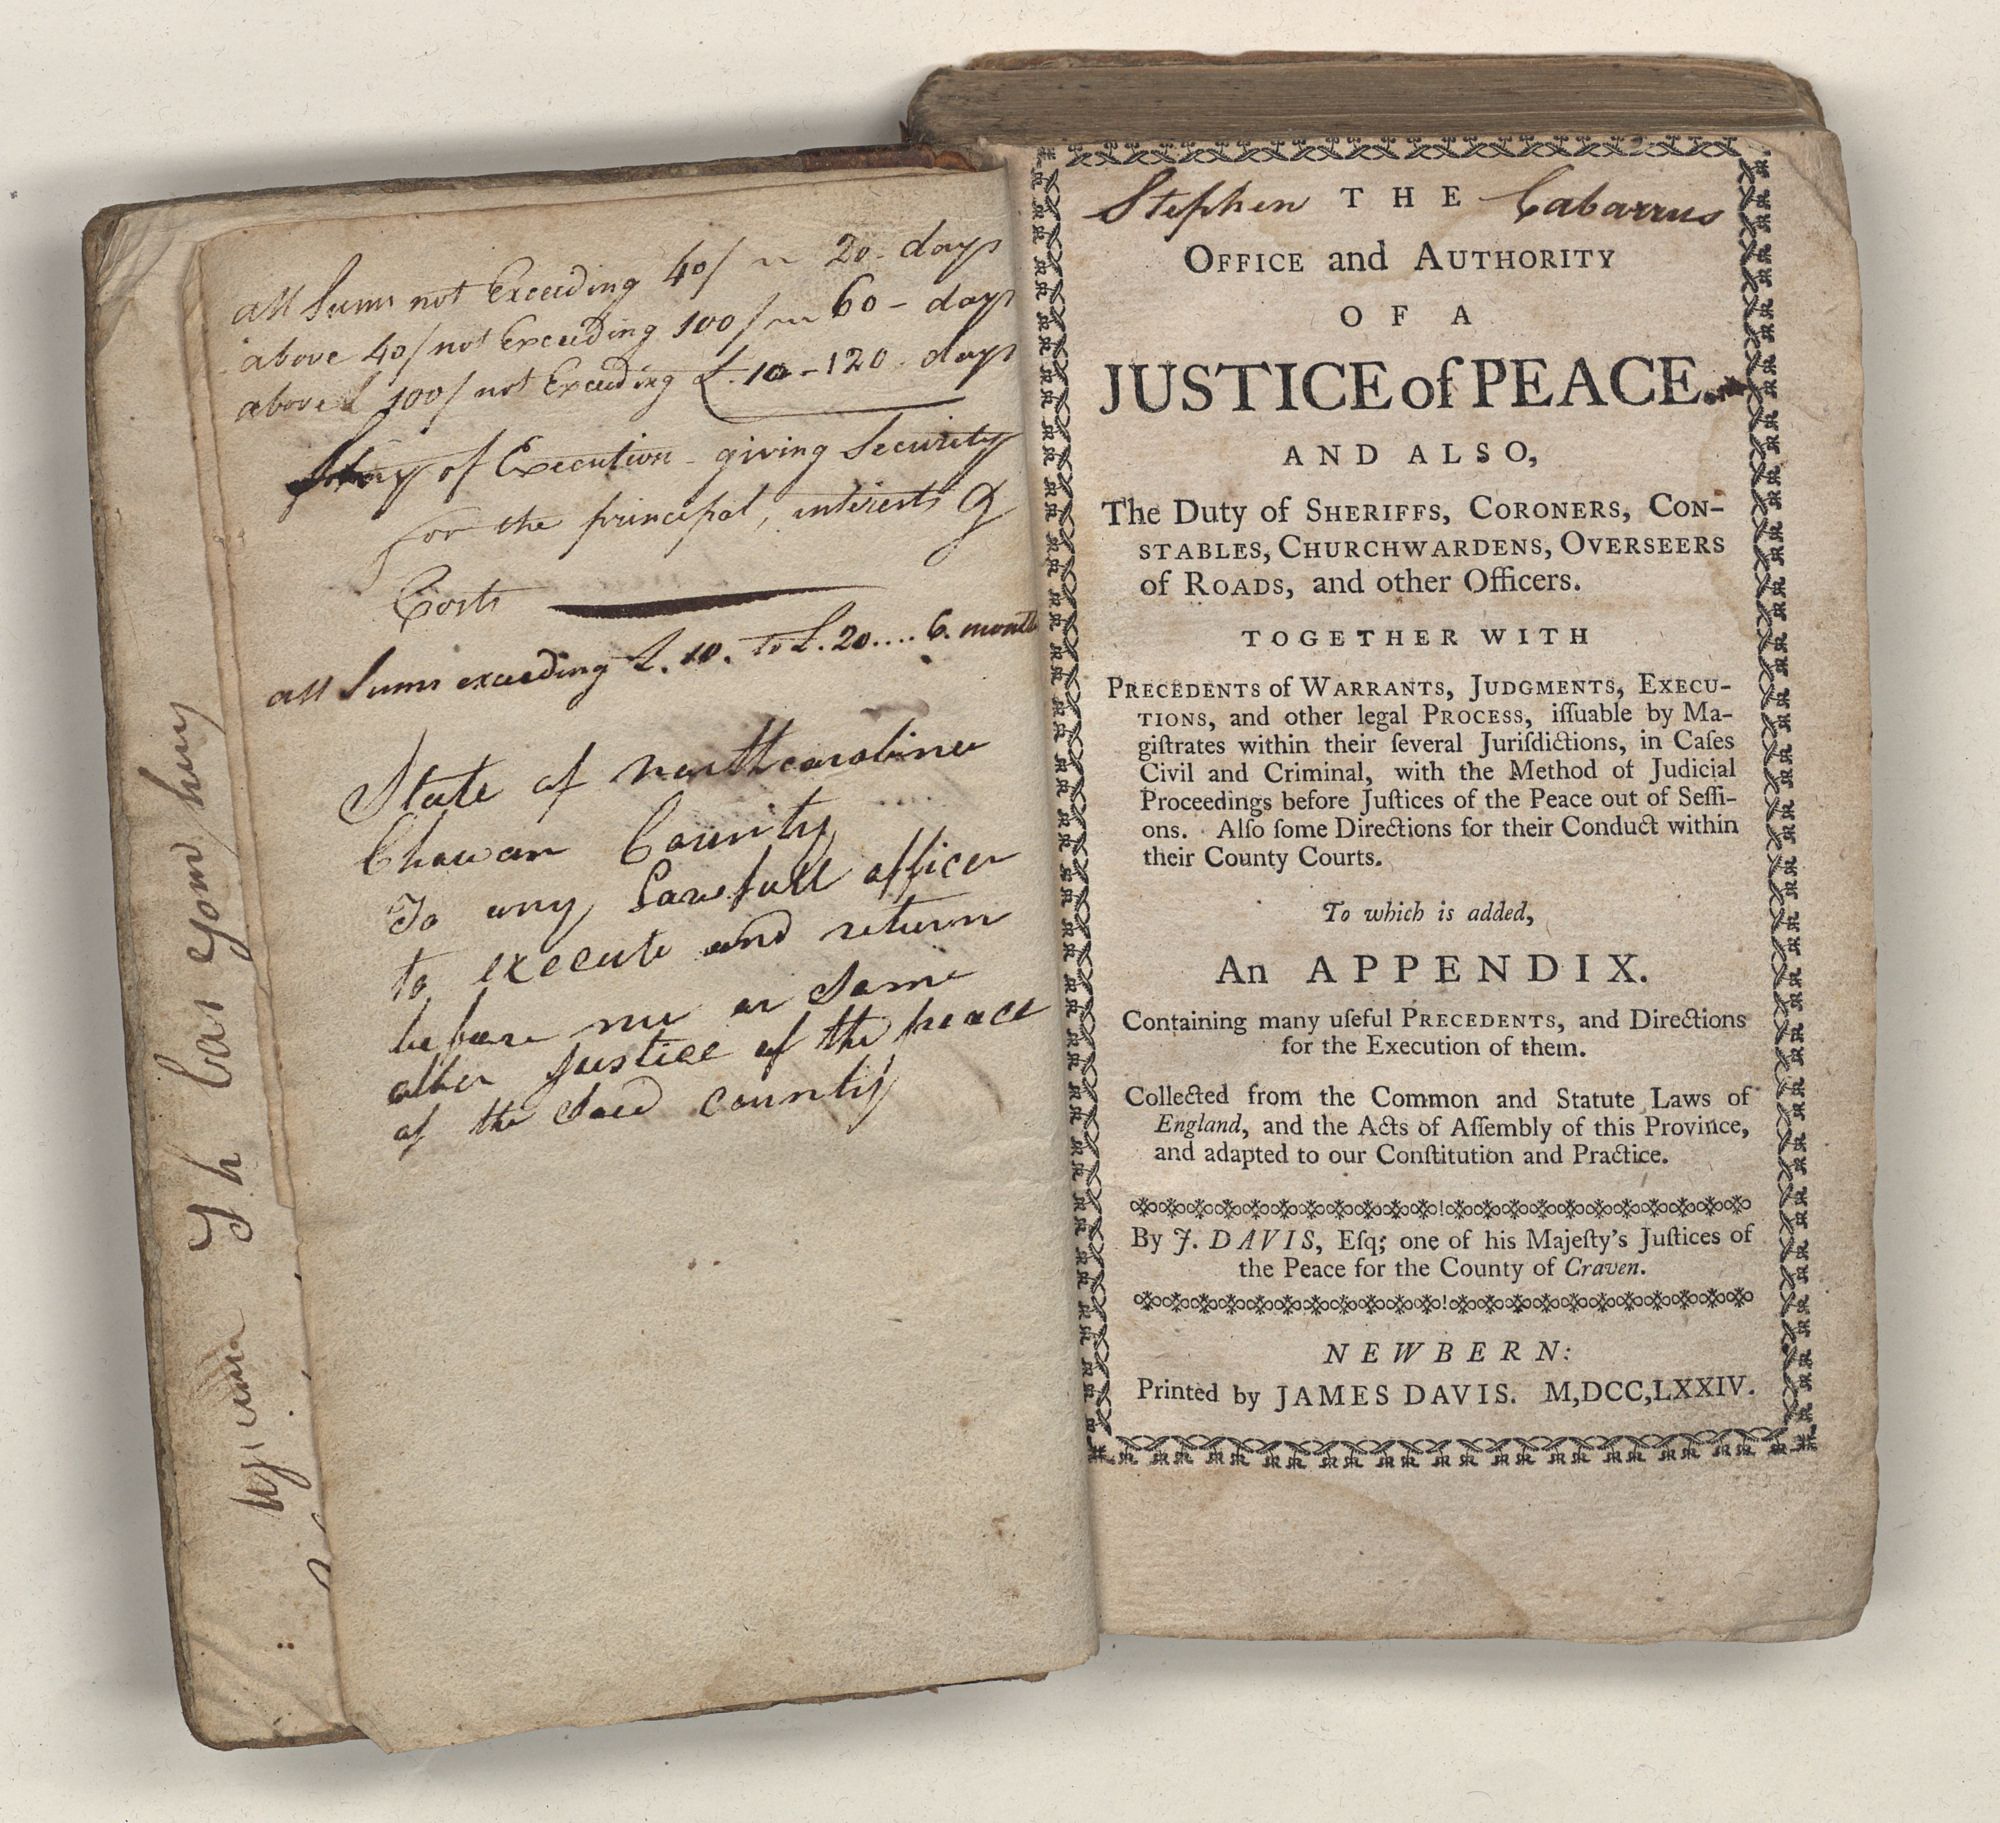 all Sums not Exceeding 40/ ~ 20 - days
above 40/ not Exceeding 100/ ~ 60 - days
above £ 100/ not Exceeding £. 10 - 120 days
Stay of Execution - giving Security
for the principal, interests &
Costs
all Sums exceeding £. 10. to £. 20.... 6. month
State of north carolina
Chowan County
To any Lawfull officer
to execute and return
before me or Some
other justice of the peace
of the Said county
Stephen THE Cabarrus
OFFICE and AUTHORITY
OF A
JUSTICE of PEACE.
AND ALSO,
The Duty of SHERIFFS, CORONERS, CON-
STABLES, CHURCHWARDENS, OVERSEERS
of ROADS, and other Officers.
TOGETHER WITH
PRECEDENTS of WARRANTS, JUDGMENTS, EXECU-
TIONS, and other legal PROCESS, iſſuable by Ma-
giſtrates within their ſeveral Juriſdictions, in Caſes
Civil and Criminal, with the Method of Judicial
Proceedings before Juſtices of the Peace out of Seſſi-
ons. Alſo ſome Directions for their Conduct within
their County Courts.
To which is added,
An APPENDIX.
Containing many uſeful PRECEDENTS, and Directions
for the Execution of them.
Collected from the Common and Statute Laws of
England, and the Acts of Aſſembly of this Province,
and adapted to our Conſtitution and Practice.
By J. DAVIS, Eſq; one of his Majeſty's Juſtices of
the Peace for the County of Craven.
NEWBERN:
Printed by JAMES DAVIS. M,DCC,LXXIV.